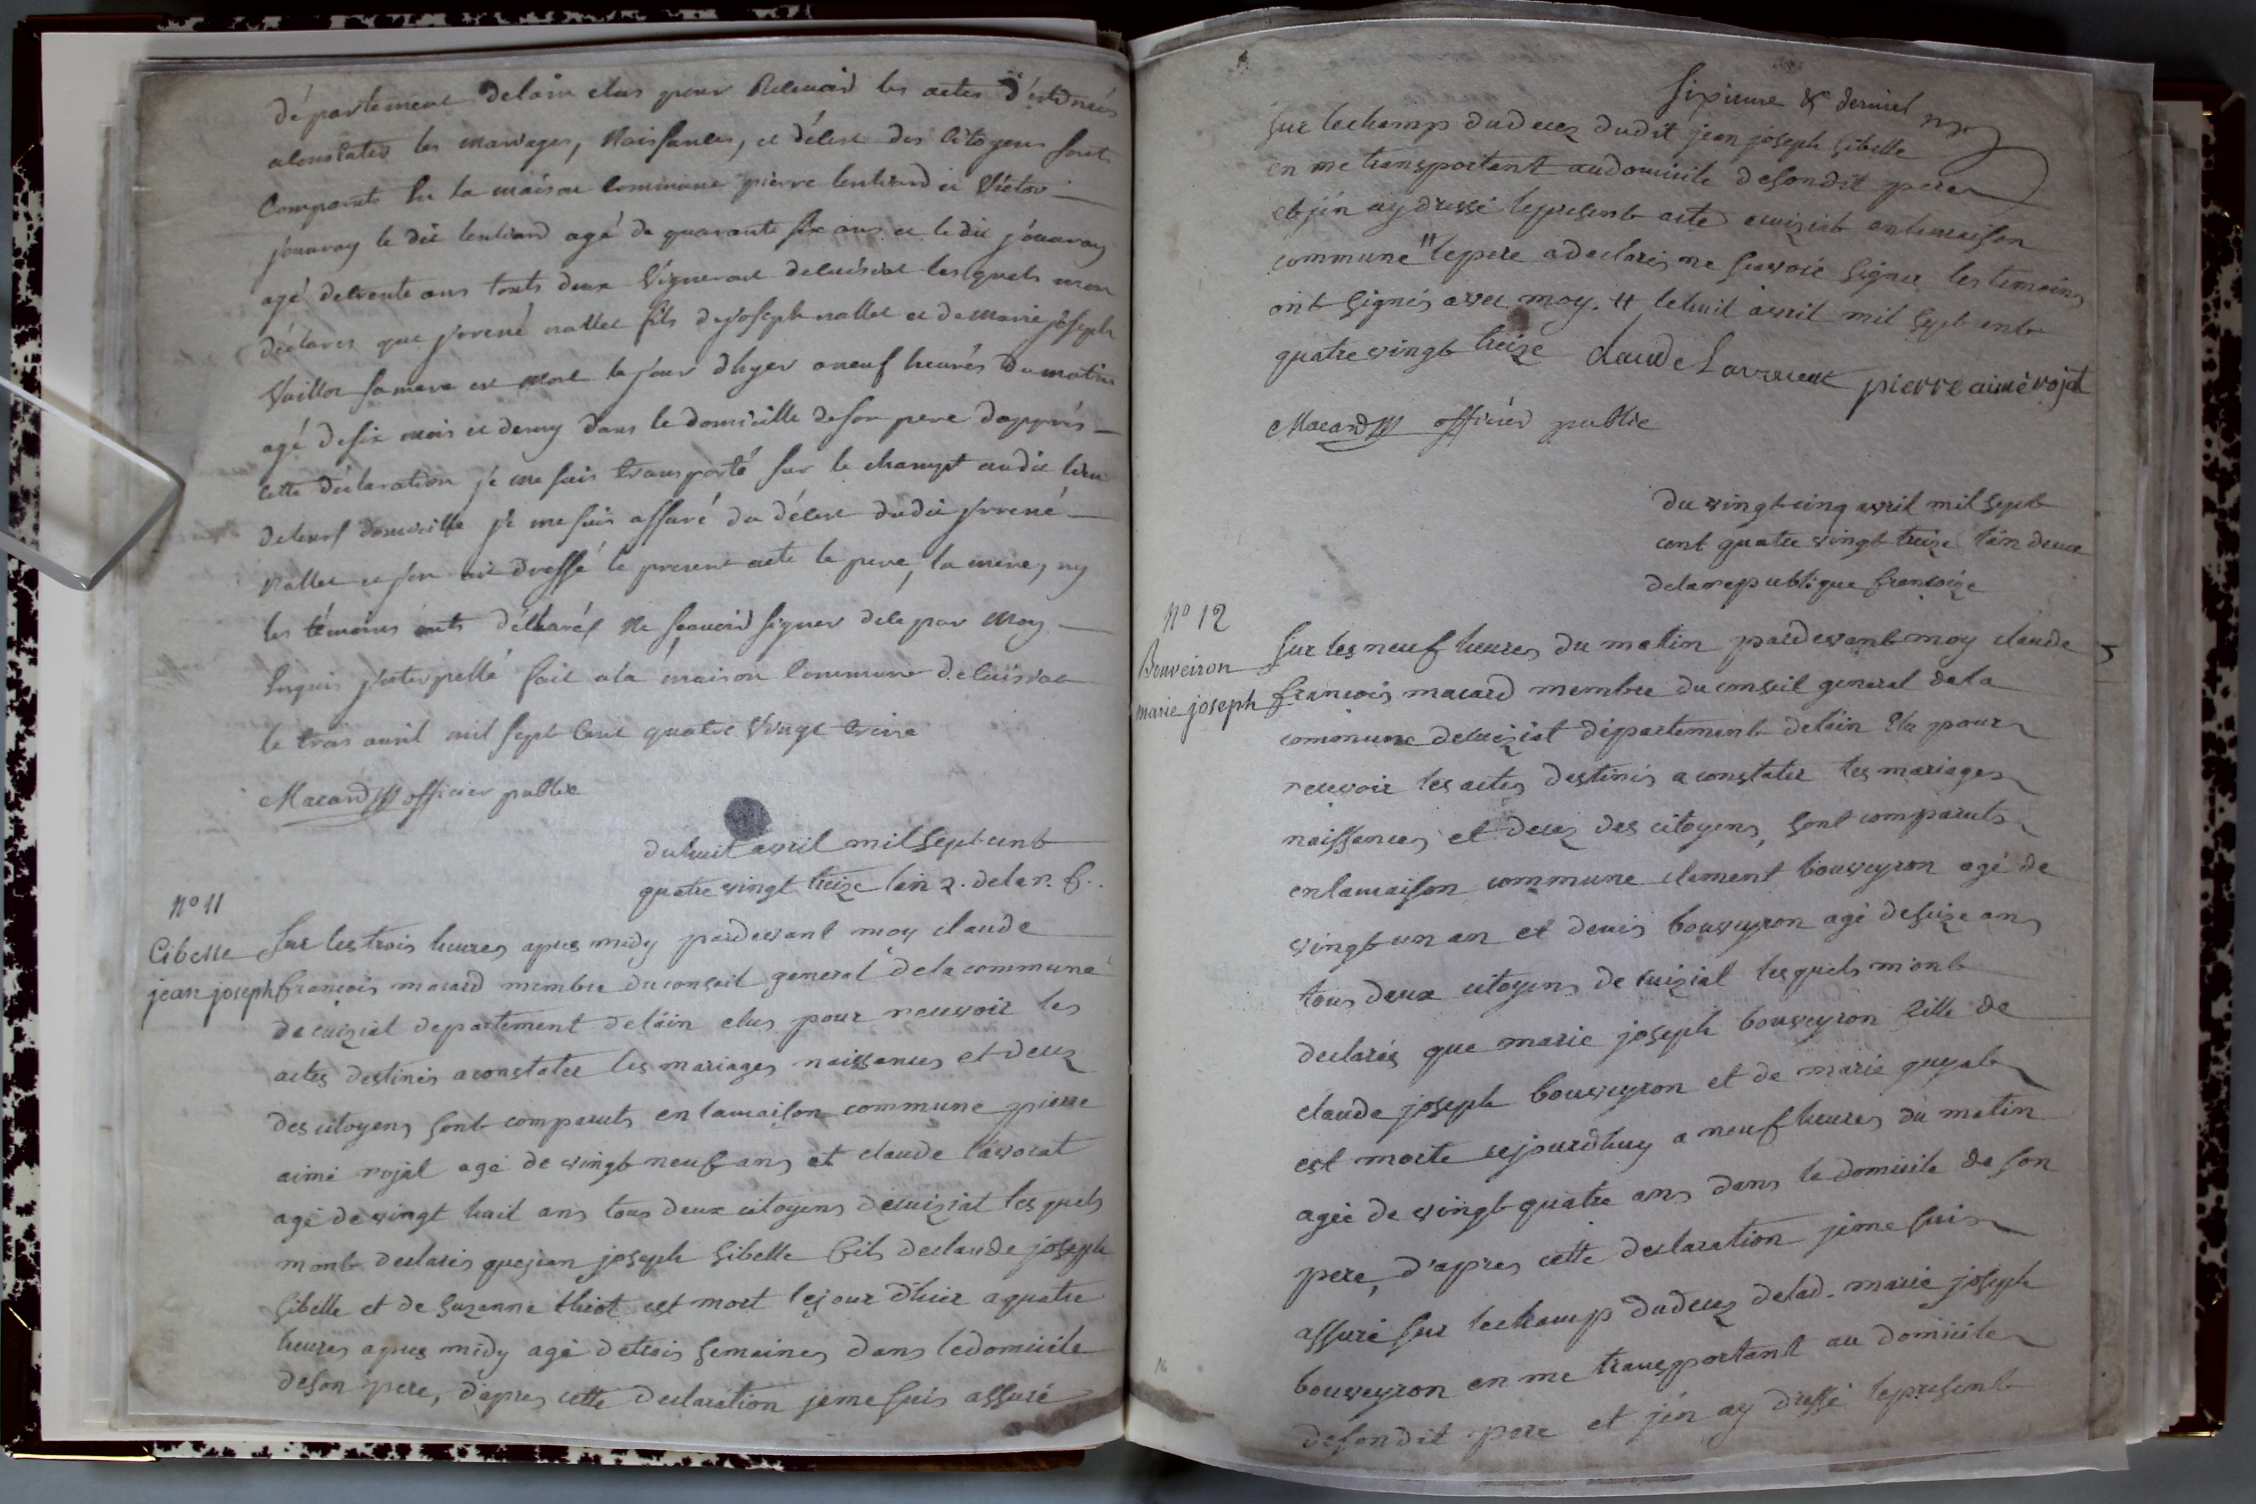 département delain elus pour Recevoir les actes d'estinés
aconstater les mariages, Naissances, et décest des Citoyens sont
Comparuts En la maison Commune pierre lentiard et Victor
jouvray le dit lentiard agé de quarante six ans et le dit jouvray
agé detrente ans touts deux Vigneront decuisiat lesquels mon
déclares que frrené nallet fils de joseph nallet et de marie joseph
Vaillon samere est mort le jour d'hyer aneuf heures Du matin
agé desix mois et demy dans le domicille deson pere dapprés
cette déclaration je me suis transporté sur le champt audit lieu
deleurs domicille je me suis assuré du décest dudit frrené
Nallet et jen ait dressé le present acte le pere, la mere, ny
les témoins onts déclarés Ne sçavoir signer delé par moy
Enquis jnterpellé fait ala maison Commune deCuisiat
le trois avril mil sept Cent quatre Vingt treize
Macard officier public
duhuit avril mil sept cent
quatre vingt treize l'an 2. de la r. f.
N° 11
Cibelle
jean joseph
sur les trois heures apres midy pardevant moy claude
françois macard membre du conseil general de la commune
de cuiziat departement de l'ain elus pour recevoir les
actes destinés aconstater les mariages naissances et decez
des citoyens sont comparuts en lamaison commune pierre
aimé rojat agé de vingt neuf ans et claude l'avocat
agé de vingt huit ans tous deux citoyens decuiziat lesquels
mont declarés quejean joseph Sibelle fils declaude joseph
Sibelle et de suzanne thiot est mort lejour d'hier a quatre
heures apres midy agé detrois semaines dans ledomicile
deson pere, d'apres cette declaration jeme suis assuré
sixieme & dernier
sur lechamp dudecez dudit jean joseph Sibelle
en me transportant audomicile desondit pere
et j'en ay dressé lepresent acte acuiziat enlamaison
commune " lepere adeclaré ne scavoir signer les temoins
ont signés avec moy. " lehuit avril mil sept cent
quatre vingt treize claude Lavocat pierre aimé rojat
Macard officier public
du vingt cinq avril mil sept
cent quatre vingt treize l'an deux
de la republique françoize
N° 12
Bouveiron
marie joseph
sur les neuf heures du matin pardevant moy claude
françois macard membre du conseil general de la
commune decuiziat département de l'ain Elu pour
recevoir les actes destinés a constater les mariages
naissances et decez des citoyens, sont comparuts
en lamaison commune clement bouveyron agé de
vingt un an et denis bouveyron agé deseize ans
tous deux citoyens de cuiziat lesquels m'ont
declarés que marie joseph bouveyron fille de
claude joseph bouveyron et de marie guyat
est morte cejourd'huy a neuf heures du matin
agée de vingt quatre ans dans le domicile de son
pere, d'apres cette declaration jeme suis
assuré sur lechamp dudecez delad. marie joseph
bouveyron en me transportant au domicile
desondit pere et j'en ay dressé lepresent